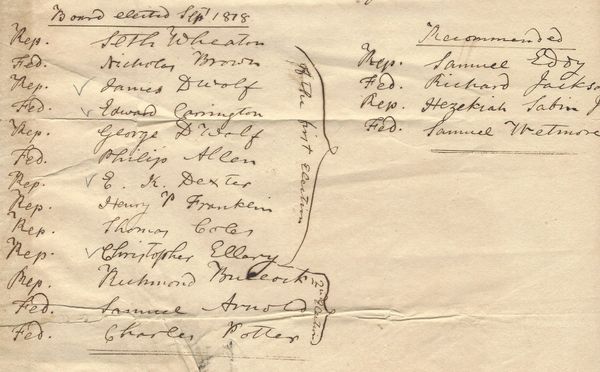 Board elected Sept 1818
Rep. Seth Wheaton
Fed. Nicholas Brown
Rep. ✓ James DWolf
Fed. ✓ Edward Carrington
Rep. George D'Wolf
Fed. Philip Allen
Rep. ✓ E. K. Dexter
Rep. Henry P Franklin
Rep. Thomas Coles
Rep. ✓ Christopher Ellery
Rep. Richmond Bullock
Fed. Samuel Arnold
Fed. Charles Potter
of the first Election
2nd Election
Recommended
Rep. Samuel Eddy
Fed. Richard Jackso
Rep. Hezekiah Sabin J
Fed. Samuel Wetmore